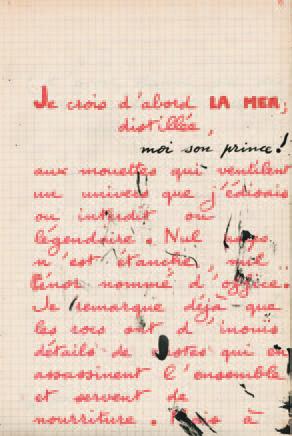 Je crois d'abord LA MER,
distillée,
moi son prince!
aux mouettes qui ventilent
un univers que j'édisais
ou interdit ou
légendaire. Nul
n'est étanche, nul
ténor nommé d'office.
Je remarque déjà que
les rocs ont d'inouis
détails de qui en
assassinent l'ensemble
et servent de
nourriture. à